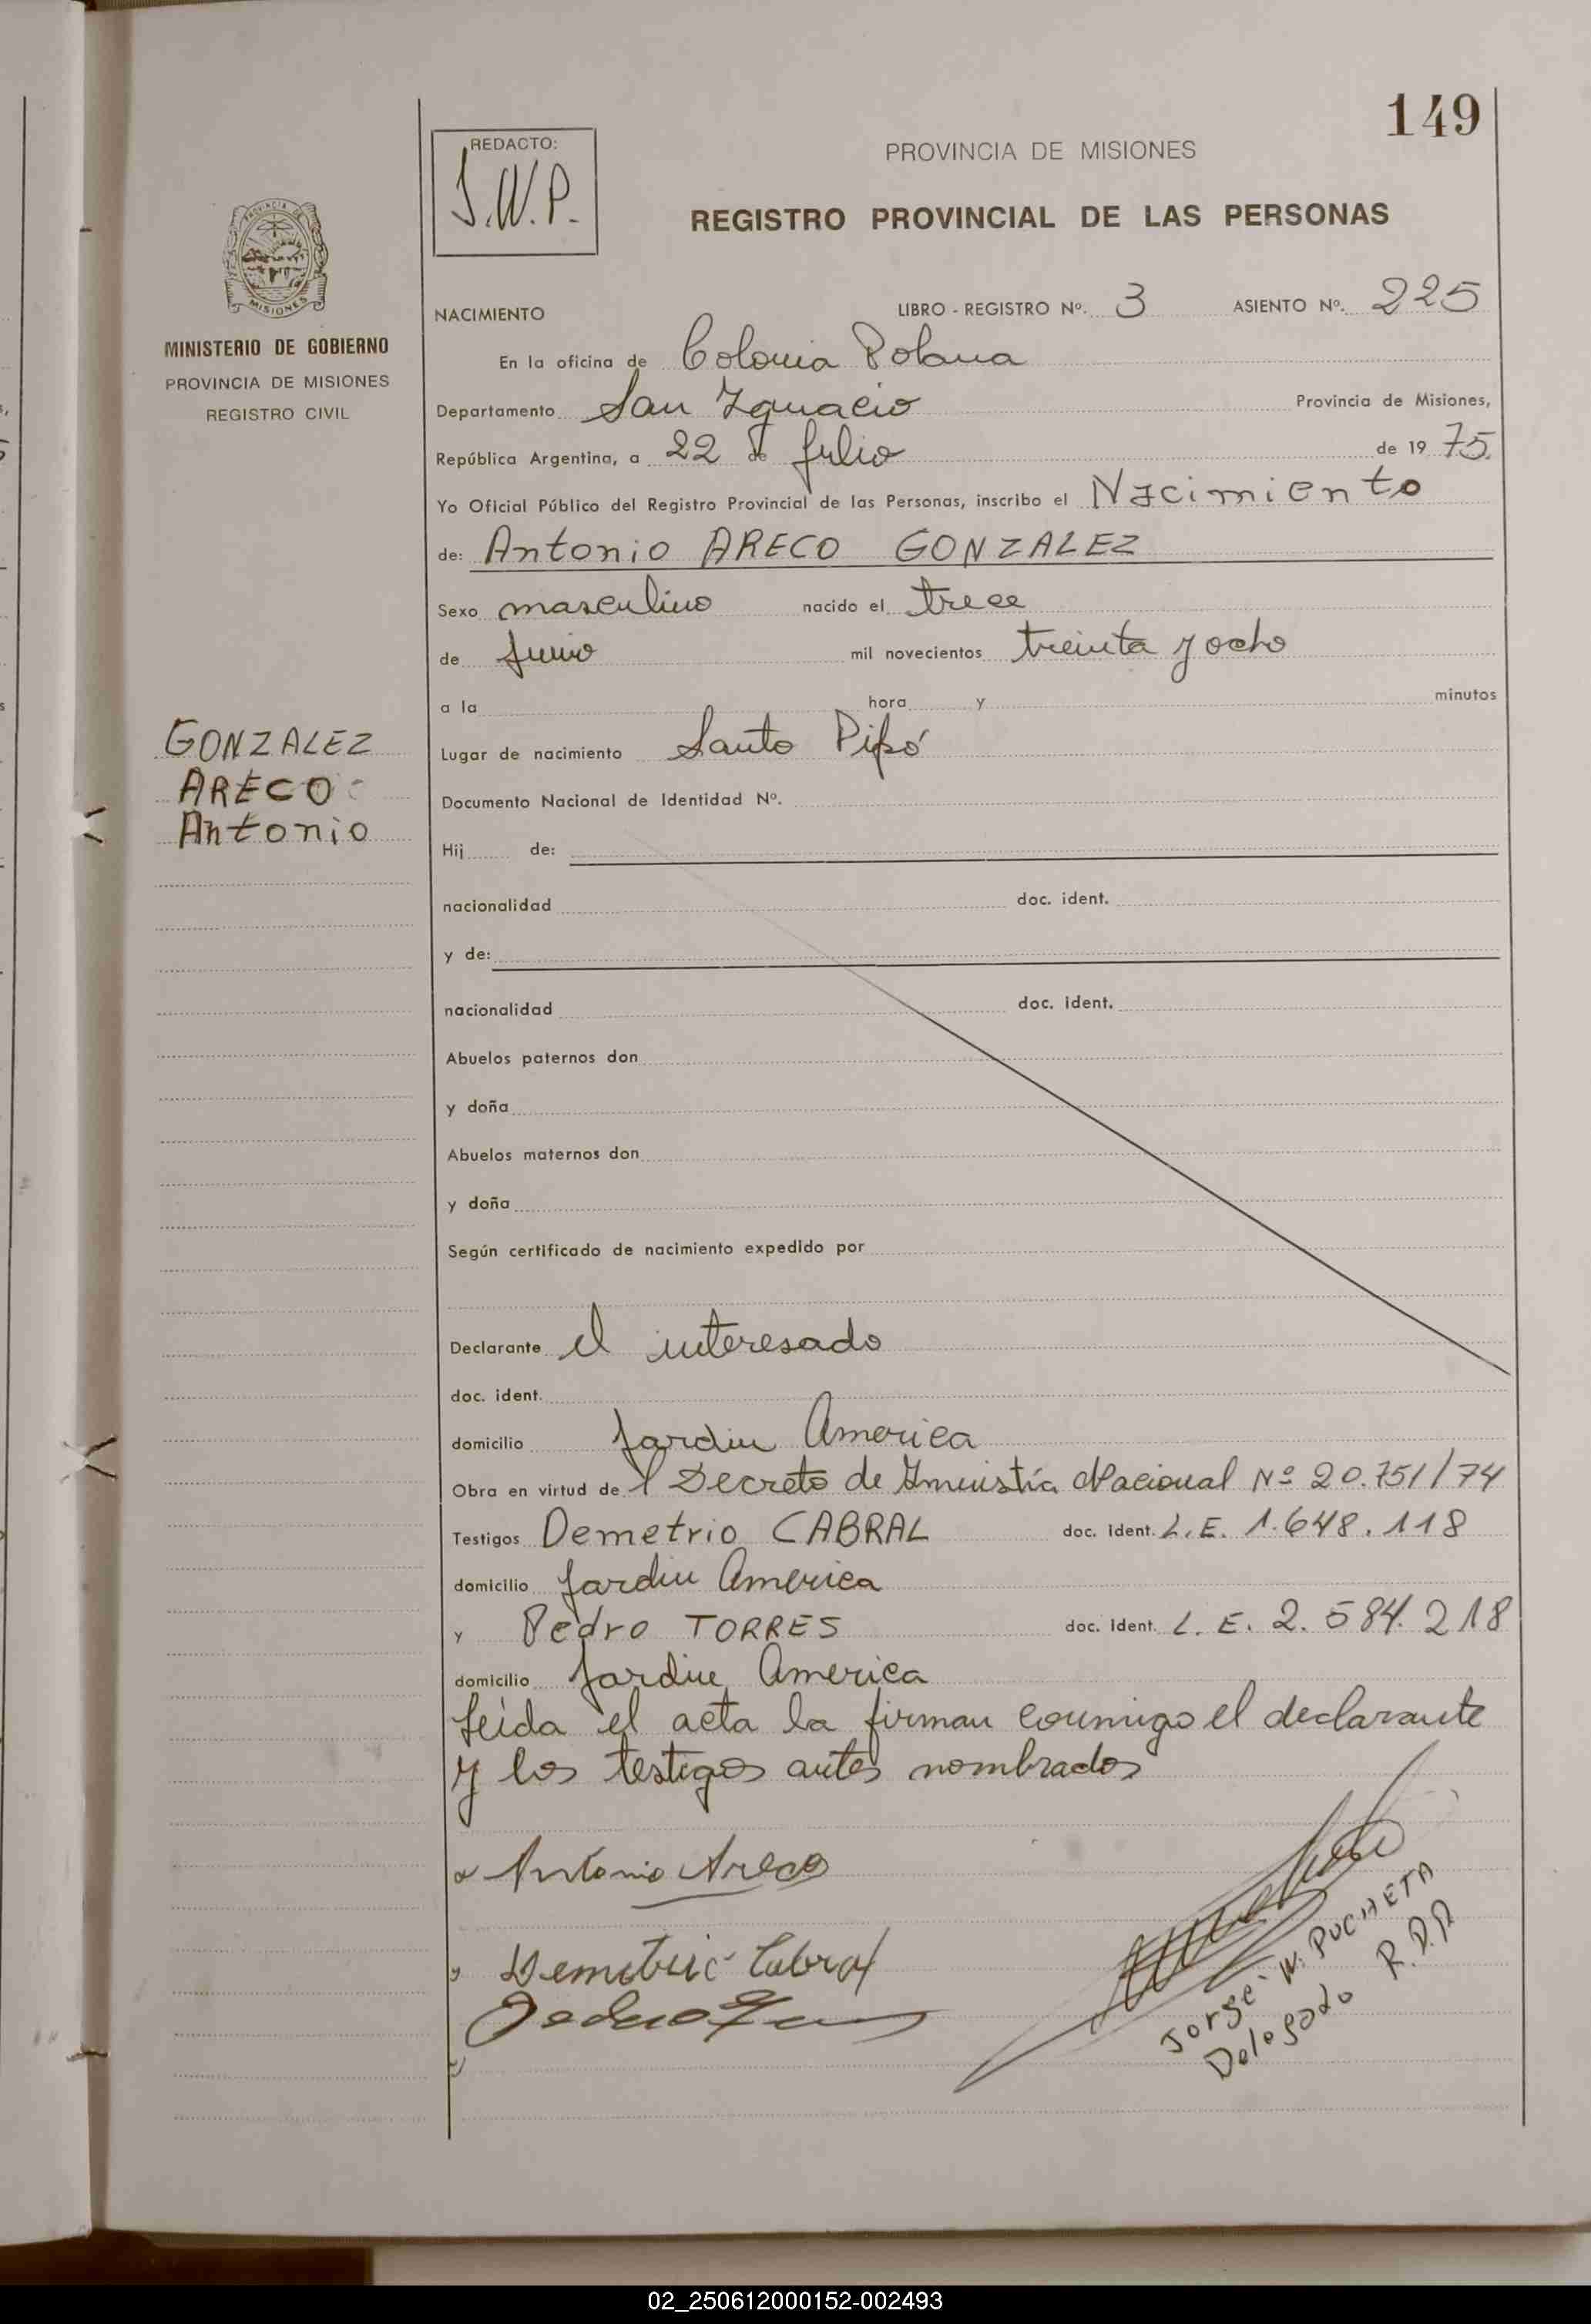 149
REDACTO:
J.W.P.
PROVINCIA DE MISIONES
REGISTRO PROVINCIAL DE LAS PERSONAS
PROVINCIA DE
MISIONES
MINISTERIO DE GOBIERNO
PROVINCIA DE MISIONES
REGISTRO CIVIL
NACIMIENTO LIBRO - REGISTRO Nº. 3 ASIENTO Nº. 225
En la oficina de Colonia Polana
Departamento San Ignacio Provincia de Misiones,
República Argentina, a 22 de Julio de 19 75.
Yo Oficial Público del Registro Provincial de las Personas, inscribo el Nacimiento
de: Antonio ARECO GONZALEZ
Sexo masculino nacido el trece
de Junio mil novecientos treinta y ocho
a la hora y minutos
Lugar de nacimiento Santo Pipó
GONZALEZ
ARECO
Antonio
Documento Nacional de Identidad Nº.
Hij de:
nacionalidad doc. ident.
y de:
nacionalidad doc. ident.
Abuelos paternos don
y doña
Abuelos maternos don
y doña
Según certificado de nacimiento expedido por
Declarante el interesado
doc. ident.
domicilio Jardin America
Obra en virtud de l Decreto de Amnistía Nacional Nº 20.751/74
Testigos Demetrio CABRAL doc. ident. L.E. 1.648.118
domicilio Jardin America
y Pedro TORRES doc. ident. L.E. 2.584.218
domicilio Jardin America
Leída el acta la firman conmigo el declarante
y los testigos antes nombrados
Antonio Areco
Demetrio Cabral
Jorge W. PUCHETA
Delegado R.P.P.
02_250612000152-002493